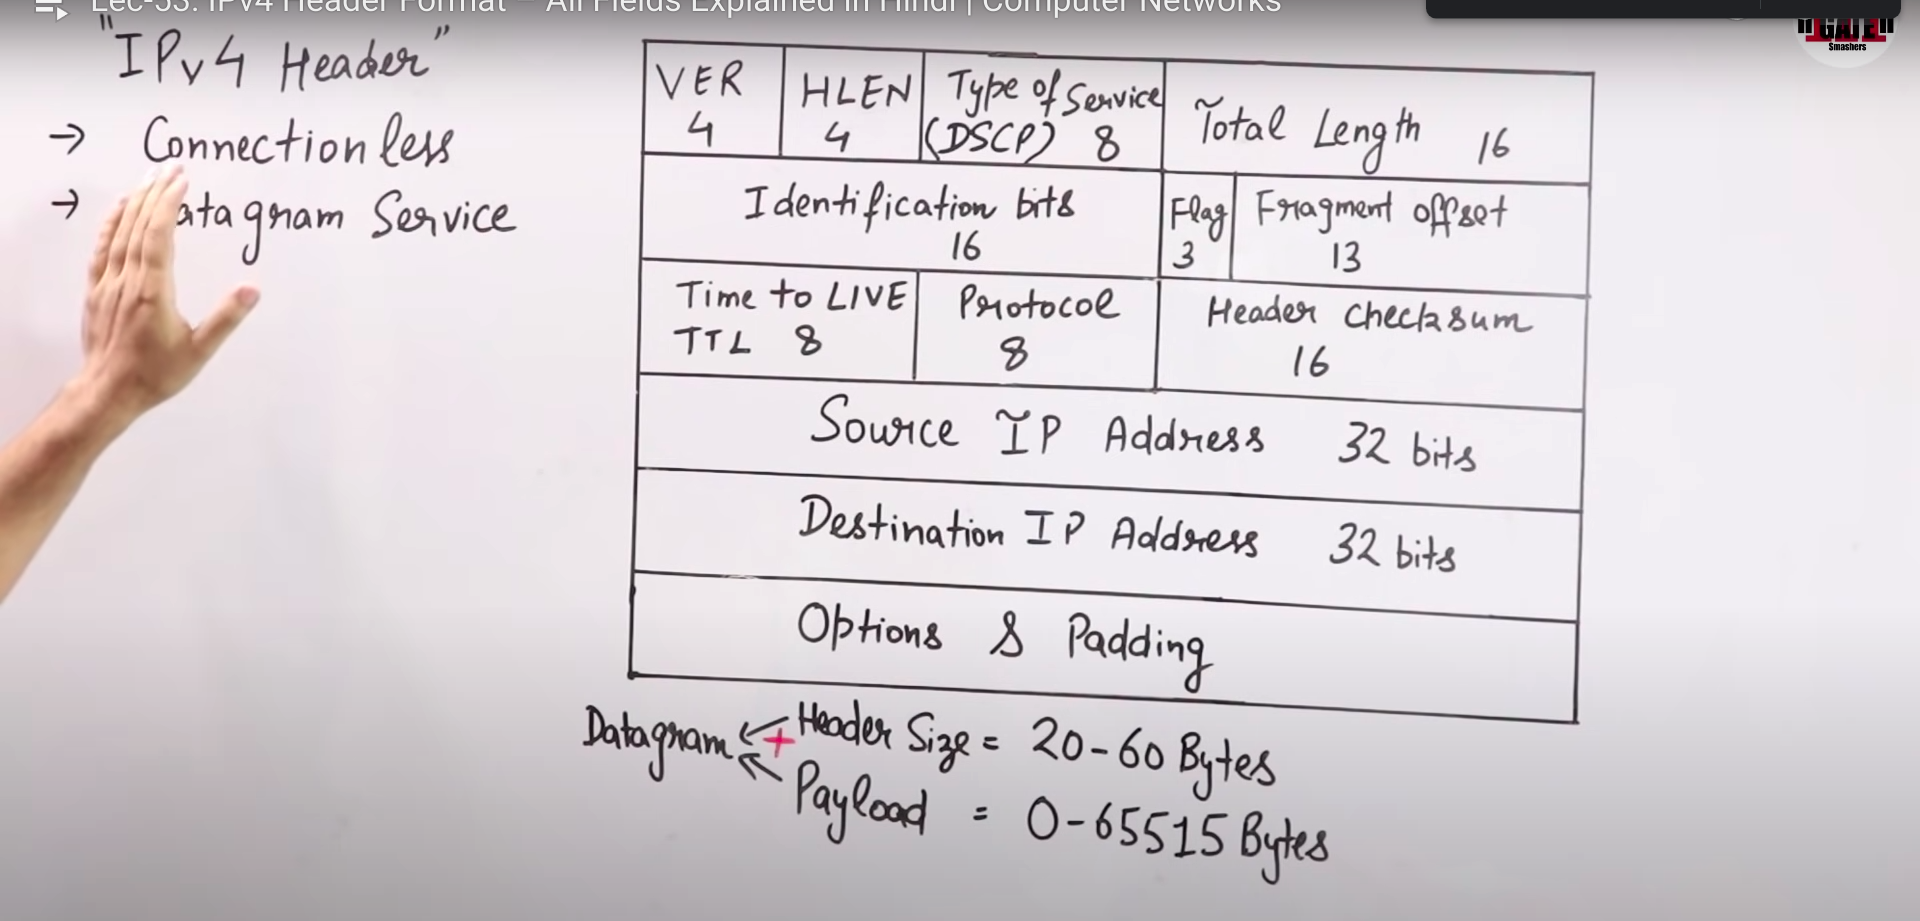 Lec-53: IPv4 Header Format – All Fields Explained in Hindi | Computer Networks
GATE
Smashers
"IPv4 Header"
→ Connectionless
→ atagram Service
VER
4
HLEN
4
Type of Service
(DSCP) 8
Total Length 16
Identification bits
16
Flag
3
Fragment offset
13
Time to LIVE
TTL 8
Protocol
8
Header checksum
16
Source IP Address 32 bits
Destination IP Address 32 bits
Options & Padding
Datagram
+
Header Size = 20-60 Bytes
Payload = 0-65515 Bytes